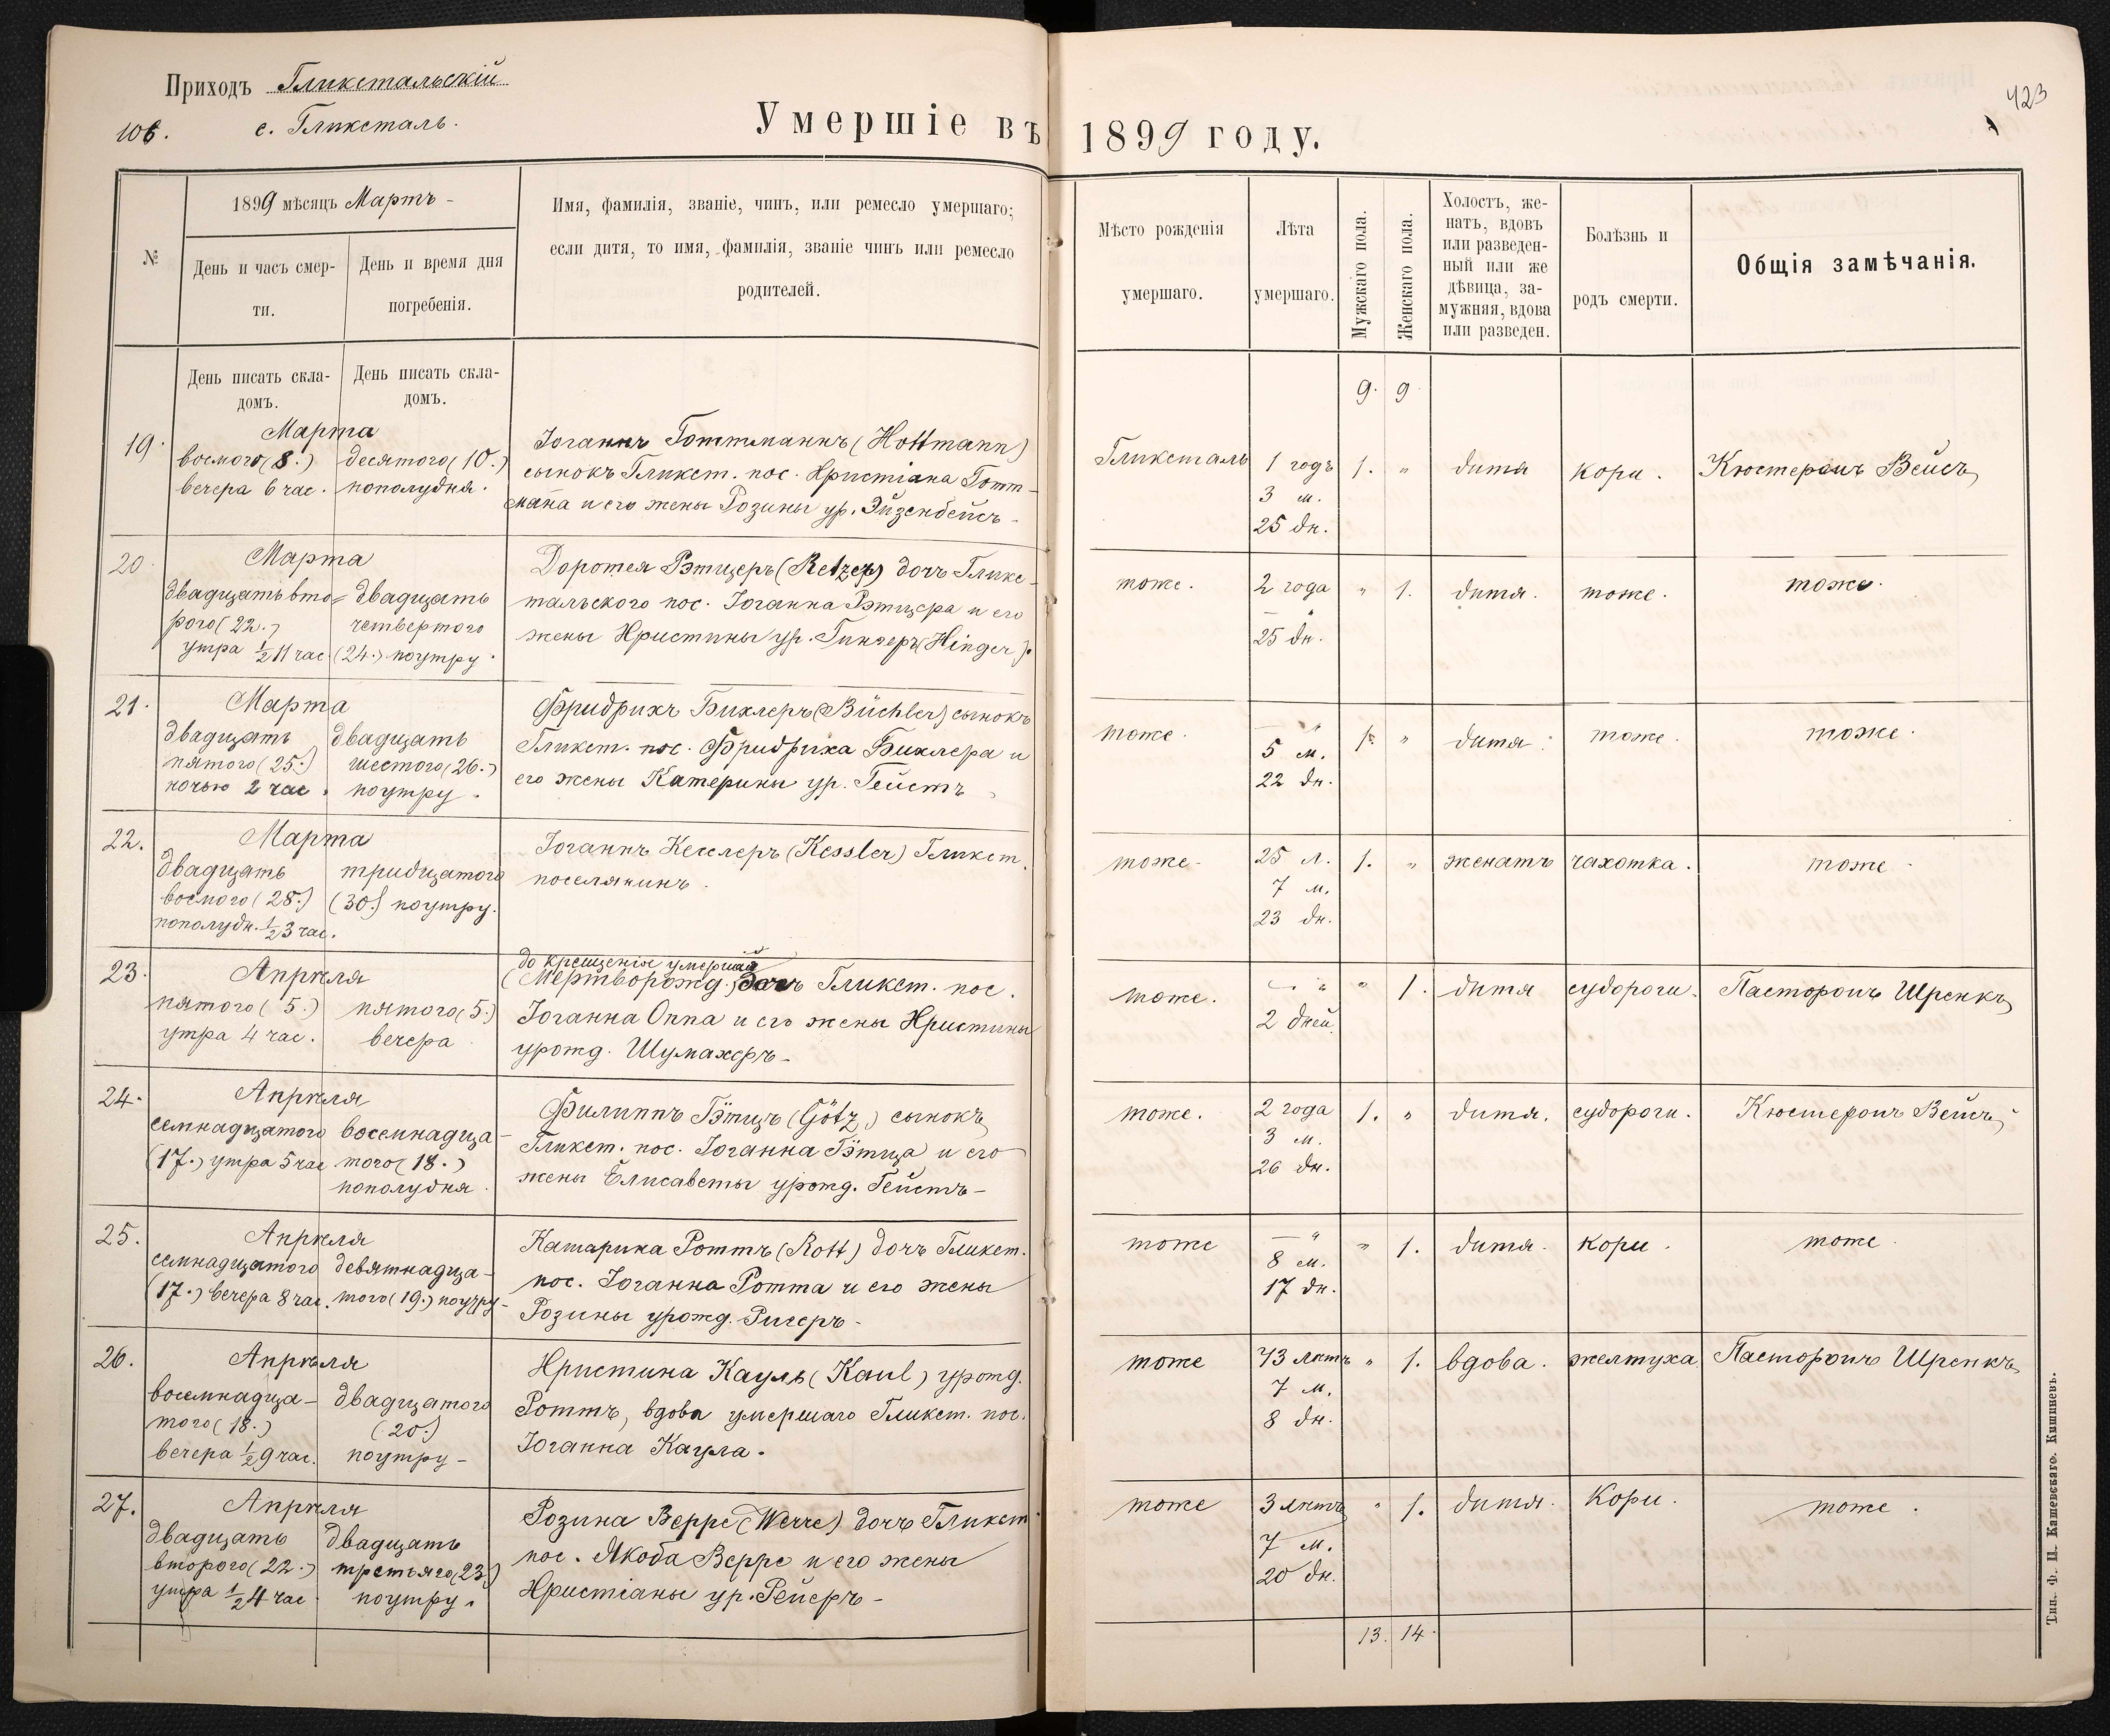 Приходъ Гликстальскій
106.
с. Гликсталь.
Умершіе въ 1899 году.
423
№
1899 мѣсяцъ Мартъ -
День и часъ смерти.
День и время дня погребенія.
Имя, фамилія, званіе, чинъ, или ремесло умершаго;
если дитя, то имя, фамилія, званіе чинъ или ремесло
родителей.
Мѣсто рожденія
умершаго.
Лѣта
умершаго.
Мужскаго пола.
Женскаго пола.
Холостъ, же-
натъ, вдовъ
или разведен-
ный или же
дѣвица, за-
мужняя, вдова
или разведен.
Болѣзнь и
родъ смерти.
Общія замѣчанія.
День писать скла-
домъ.
День писать скла-
домъ.
9. 9
19.
Марта
восмого (8.)
вечера 6 час.
десятого (10.)
пополудня.
Іоганнъ Готтманнъ (Hottmann)
сынокъ Гликст. пос. Христіана Готт-
мана и его жены Розины ур. Эйзенбейсъ -
Гликсталь
1 годъ
3 м.
25 дн.
1. "
дитя
кори.
Кюстеромъ Вейсъ
20
Марта
двадцать вто=
рого (22.)
утра ½11 час.
двадцать
четвертого
(24.) поутру.
Доротея Рэтцеръ (Retzer) дочь Гликс-
тальского пос. Іоганна Рэтцера и его
жены Христины ур. Гингеръ (Hinger).
тоже.
2 года
— "
25 дн.
" 1.
дитя.
тоже.
тоже.
21.
Марта
двадцать
пятого (25.)
ночью 2 час.
двадцать
шестого (26.)
поутру.
Фридрихъ Бихлеръ (Büchler) сынокъ
Гликст. пос. Фридриха Бихлера и
его жены Катерины ур. Гейстъ
тоже.
— "
5 м.
22 дн.
1. "
дитя.
тоже.
тоже.
22.
Марта
двадцать
восмого (28.)
пополудн. ½3 час.
тридцатого
(30.) поутру.
Іоганнъ Кесслеръ (Kessler) Гликст.
поселянинъ.
тоже-
25 л.
7 м.
23 дн.
1. "
женатъ
чахотка.
тоже
23.
Апрѣля
пятого (5.)
утра 4 час.
пятого (5.)
вечера
до крещенія умершая
(Мертворожд.) дочь Гликст. пос.
Іоганна Оппа и его жены Христины
урожд. Шумахеръ -
тоже.
— "
2 дней.
" 1.
дитя
судороги.
Пасторомъ Шренкъ
24.
Апрѣля
семнадцатого
(17.) утра 5 час
восемнадца-
того (18.)
пополудня.
Филиппъ Гэтцъ (Götz) сынокъ
Гликст. пос. Іоганна Гэтца и его
жены Елисаветы урожд. Гейстъ -
тоже.
2 года
3 м.
26 дн.
1. "
дитя.
судороги.
Кюстеромъ Вейсъ
25.
Апрѣля
семнадцатого
(17.) вечера 8 час.
девятнадца-
того (19.) поутру-
Катарина Роттъ (Rott) дочь Гликст.
пос. Іоганна Ротта и его жены
Розины урожд. Ригеръ -
тоже
— "
8 м.
17 дн.
" 1.
дитя.
кори.
тоже
26.
Апрѣля
восемнадца-
того (18.)
вечера ½9 час.
двадцатого
(20.)
поутру -
Христина Кауль (Kaul) урожд.
Роттъ, вдова умершаго Гликст. пос.
Іоганна Каула.
тоже
73 лѣтъ
7 м.
8 дн.
" 1.
вдова.
желтуха
Пасторомъ Шренкъ
27.
Апрѣля
двадцать
второго (22.)
утра ½4 час
двадцать
третьяго (23.)
поутру.
Розина Верре (Werre) дочь Гликст
пос. Якоба Верре и его жены
Христіаны ур. Рейсръ -
тоже
3 лѣтъ
7 м.
20 дн.
" 1.
дитя.
Кори.
тоже.
13. 14.
Тип. Ф. П. Кашевскаго. Кишиневъ.